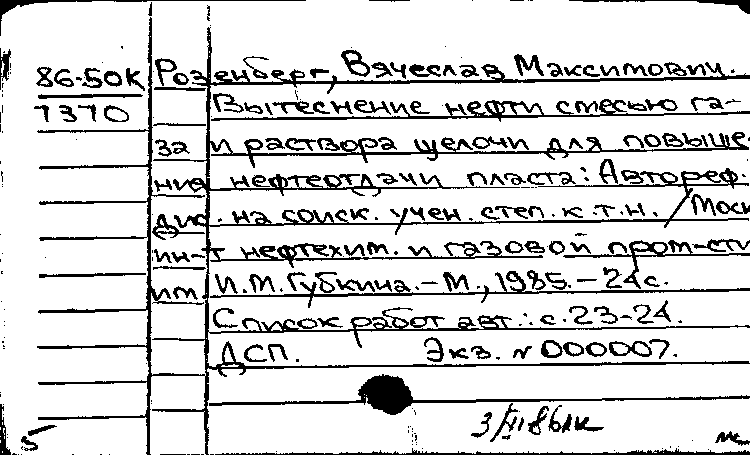 86-50К Розенберг, Вячеслав Максимович.
1370 Вытеснение нефти смесью га-
за и раствора щелочи для повыше-
ния нефтеотдачи пласта: Автореф.
дис. на соиск. учен. степ. к.т.н. / Моск
ин-т нефтехим. и газовой пром-сти
им. И.М. Губкина. - М., 1985. - 24 с.
Список работ авт.: с. 23-24.
ДСП. Экз. № 000007.
5